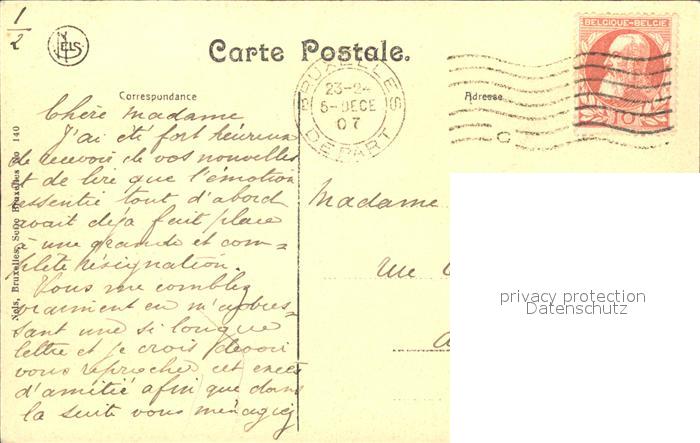 1/2
NELS
Carte Postale.
BRUXELLES
23-24
5-DECE
07
DEPART
BELGIQUE-BELGIE
10
Correspondance
Adresse
Nels, Bruxelles, Série Bruxelles No. 140
Chère Madame
J'ai été fort heureux
de recevoir de vos nouvelles
et de lire que l'émotion
ressentie tout d'abord
avait déjà fait place
à une grande et com=
plète résignation.
Vous me comblez
vraiment en m'adres=
sant une si longue
lettre et je crois devoir
vous reprocher cet excès
d'amitié afin que dans
la suite vous ménagiez
Madame
privacy protection
Datenschutz